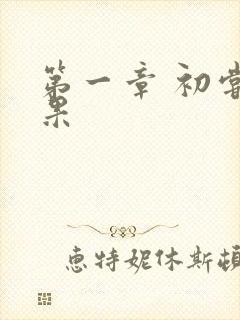 第一章 初尝
果
惠特妮休斯顿